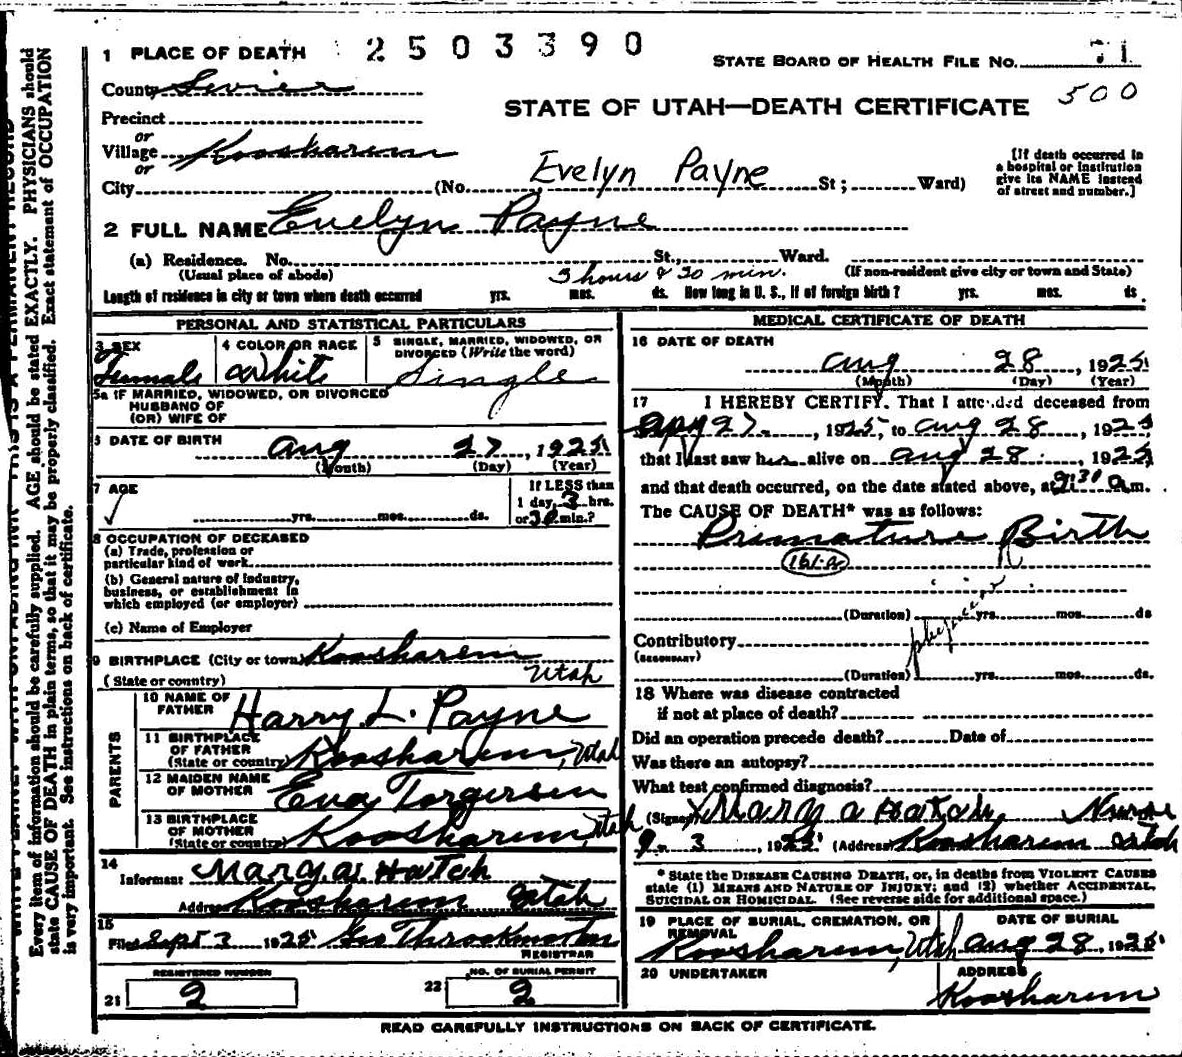 1 PLACE OF DEATH 2503390
STATE BOARD OF HEALTH FILE No. 71
County Sevier
STATE OF UTAH—DEATH CERTIFICATE 500
Precinct
or
Village Koosharem
or
City (No. Evelyn Payne St; Ward)
[If death occurred in
a hospital or institution
give its NAME instead
of street and number.]
2 FULL NAME Evelyn Payne
(a) Residence. No. St., Ward.
(Usual place of abode) 3 hours & 30 min. (If non-resident give city or town and State)
Length of residence in city or town where death occurred yrs. mos. ds. How long in U. S., if of foreign birth? yrs. mos. ds.
PERSONAL AND STATISTICAL PARTICULARS
3 SEX
Female
4 COLOR OR RACE
White
5 SINGLE, MARRIED, WIDOWED, OR
DIVORCED (Write the word)
Single
5a IF MARRIED, WIDOWED, OR DIVORCED
HUSBAND OF
(OR) WIFE OF
6 DATE OF BIRTH
Aug 27, 1925
(Month) (Day) (Year)
7 AGE
yrs. mos. ds.
If LESS than
1 day, 3 hrs.
or 30 min.?
8 OCCUPATION OF DECEASED
(a) Trade, profession or
particular kind of work
(b) General nature of industry,
business, or establishment in
which employed (or employer)
(c) Name of Employer
9 BIRTHPLACE (City or town) Koosharem
(State or country) Utah
PARENTS
10 NAME OF
FATHER Harry L. Payne
11 BIRTHPLACE
OF FATHER
(State or country) Koosharem, Utah
12 MAIDEN NAME
OF MOTHER Eva Torgersen
13 BIRTHPLACE
OF MOTHER
(State or country) Koosharem, Utah
14
Informant Mary A Hatch
Address Koosharem Utah
15
Filed Sept 3 1925 Geo Throckmorton
REGISTRAR
REGISTERED NUMBER
21 2
NO. OF BURIAL PERMIT
22 2
MEDICAL CERTIFICATE OF DEATH
16 DATE OF DEATH
Aug 28, 1925
(Month) (Day) (Year)
17 I HEREBY CERTIFY. That I attended deceased from
27, 1925, to Aug 28, 1925
that I last saw her alive on Aug 28, 1925
and that death occurred, on the date stated above, at 2:30 a.m.
The CAUSE OF DEATH* was as follows:
Premature Birth
161-a
(Duration) yrs. mos. ds
Contributory
(SECONDARY)
(Duration) yrs. mos. ds.
no physician
18 Where was disease contracted
if not at place of death?
Did an operation precede death? Date of
Was there an autopsy?
What test confirmed diagnosis?
(Signed) Mary A Hatch Nurse
9. 3, 1925 (Address) Koosharem Utah
* State the DISEASE CAUSING DEATH, or, in deaths from VIOLENT CAUSES
state (1) MEANS AND NATURE OF INJURY; and (2) whether ACCIDENTAL,
SUICIDAL OR HOMICIDAL. (See reverse side for additional space.)
19 PLACE OF BURIAL, CREMATION, OR
REMOVAL
Koosharem, Utah
DATE OF BURIAL
Aug 28, 1925
20 UNDERTAKER
ADDRESS
Koosharem
READ CAREFULLY INSTRUCTIONS ON BACK OF CERTIFICATE.
Every item of information should be carefully supplied. AGE should be stated EXACTLY. PHYSICIANS should
state CAUSE OF DEATH in plain terms, so that it may be properly classified. Exact statement of OCCUPATION
is very important. See instructions on back of certificate.